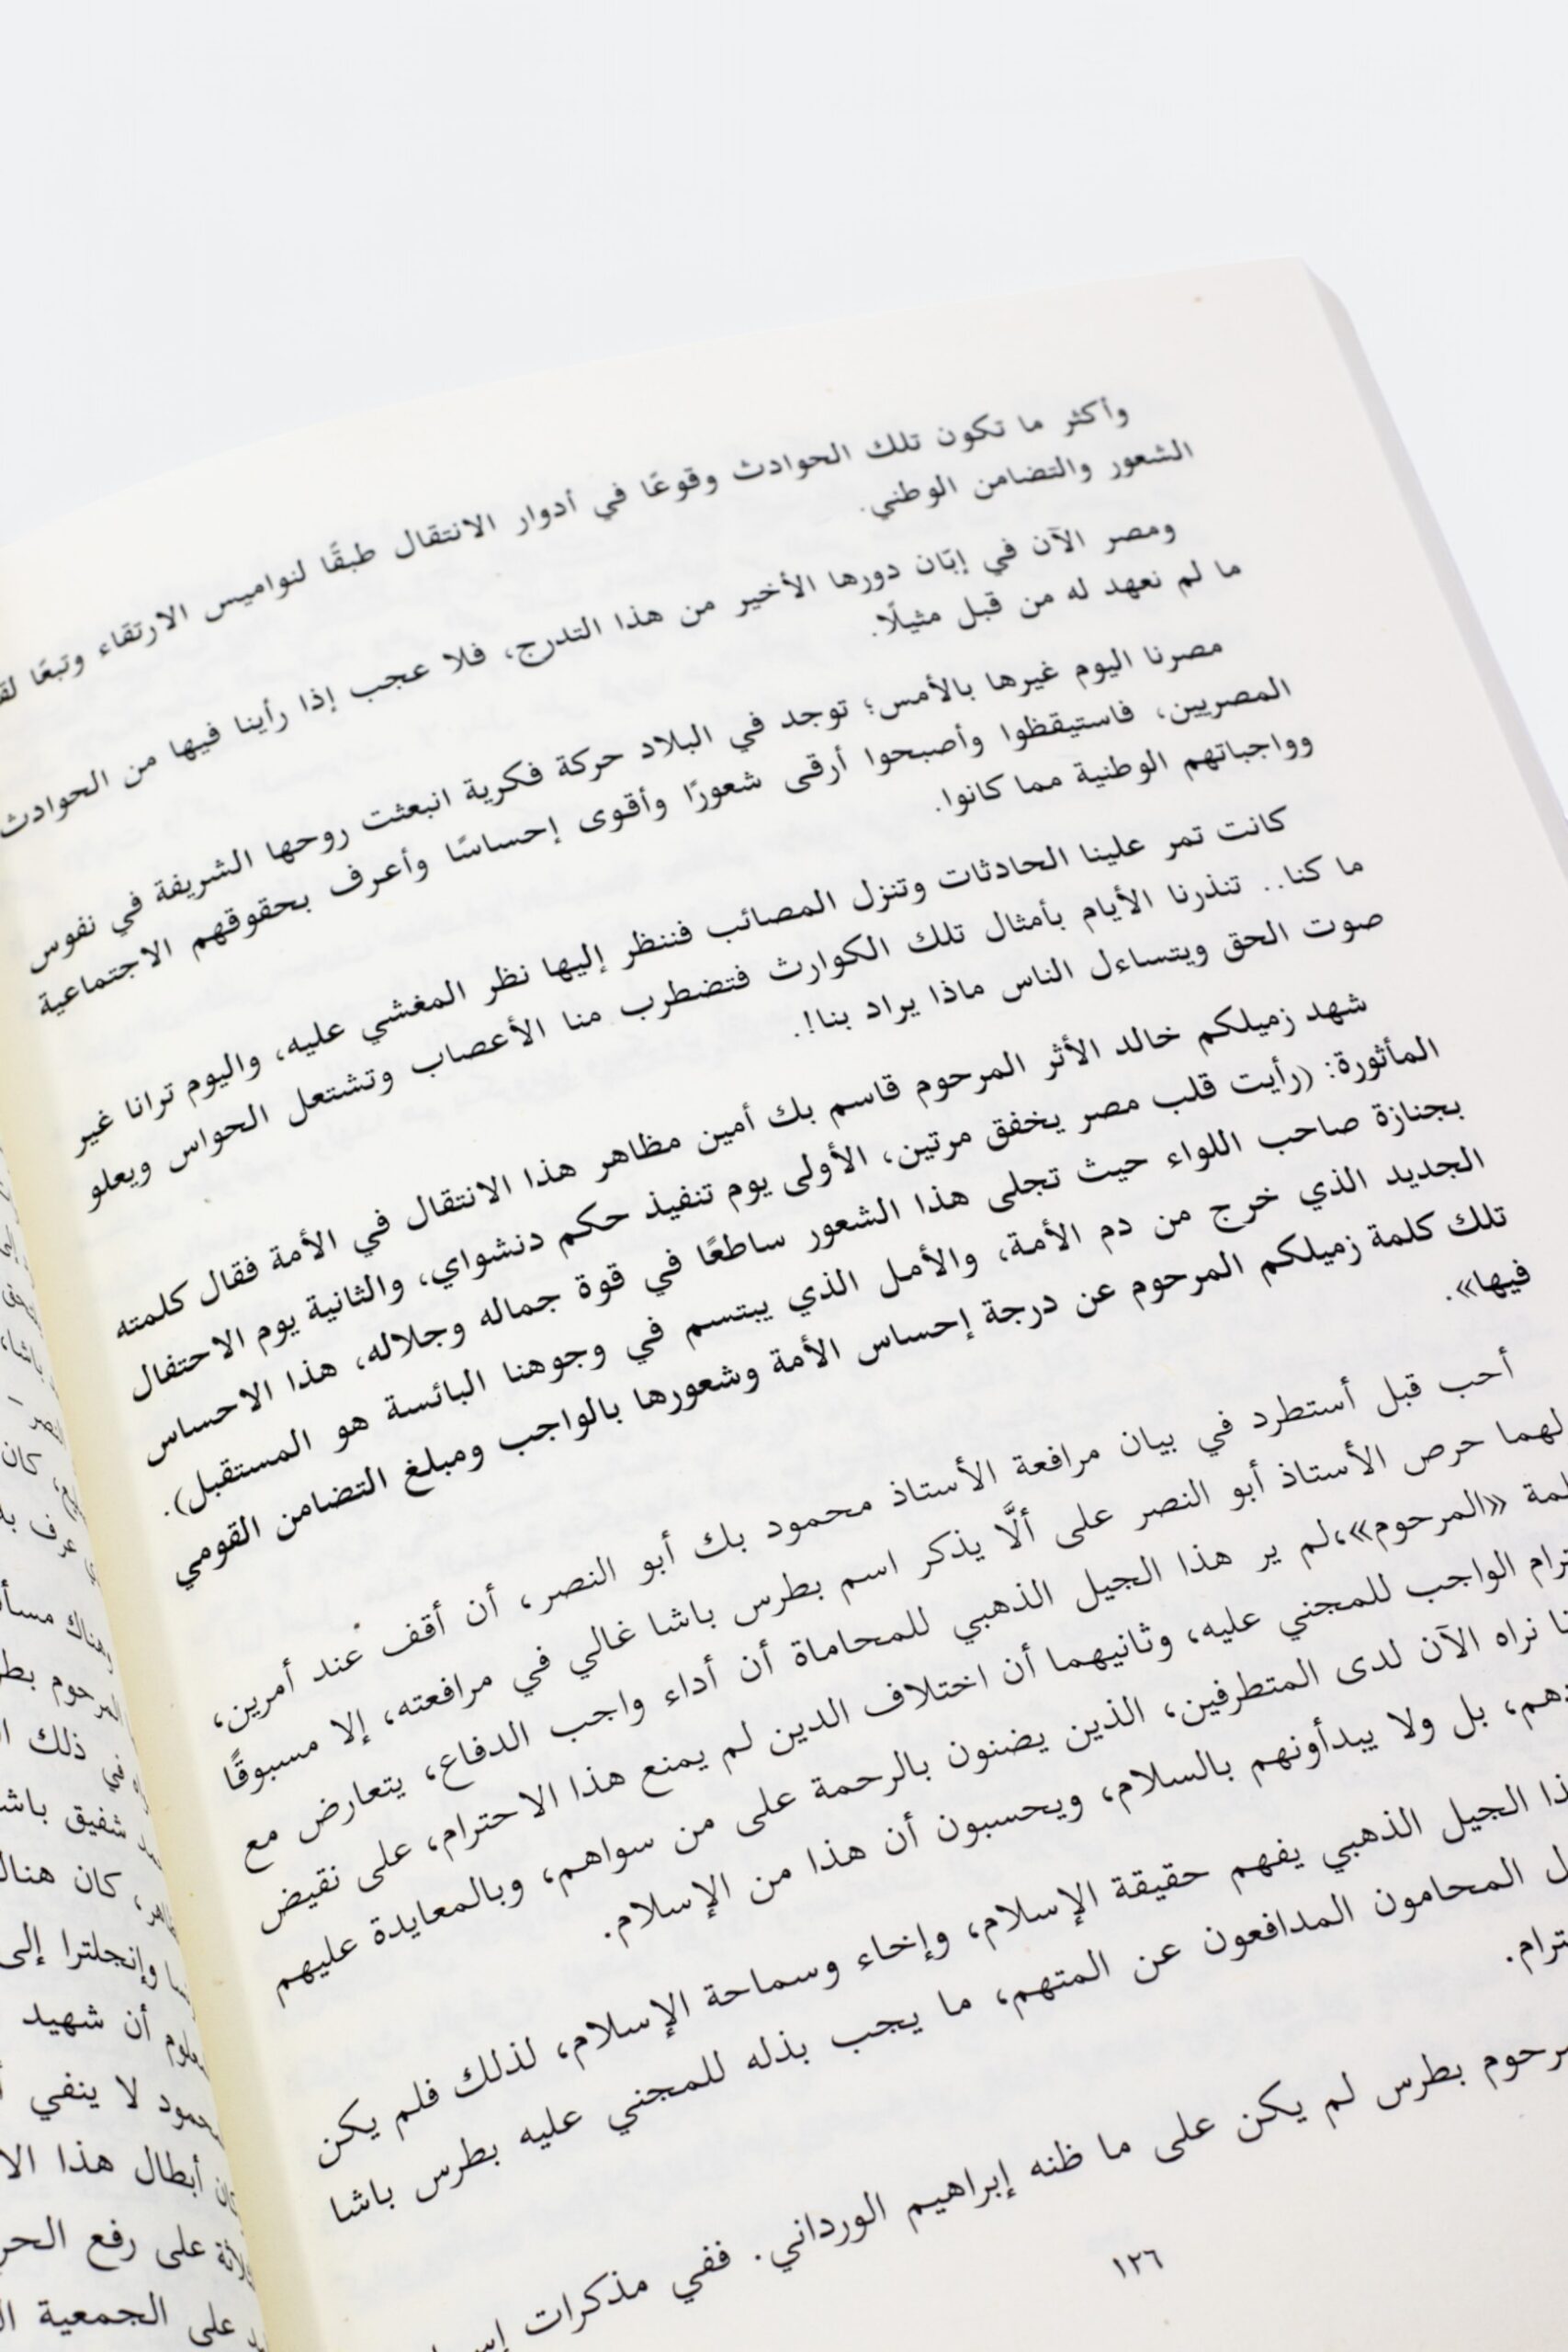 وأكثر ما تكون تلك الحوادث وقوعًا في أدوار الانتقال طبقًا لنواميس الارتقاء وتبعًا
الشعور والتضامن الوطني.
ومصر الآن في إبّان دورها الأخير من هذا التدرج، فلا عجب إذا رأينا فيها من الحوادث
ما لم نعهد له من قبل مثيلًا.
مصرنا اليوم غيرها بالأمس؛ توجد في البلاد حركة فكرية انبعثت روحها الشريفة في نفوس
المصريين، فاستيقظوا وأصبحوا أرقى شعورًا وأقوى إحساسًا وأعرف بحقوقهم الاجتماعية
وواجباتهم الوطنية مما كانوا.
كانت تمر علينا الحادثات وتنزل المصائب فننظر إليها نظر المغشي عليه، واليوم ترانا غير
ما كنا.. تنذرنا الأيام بأمثال تلك الكوارث فتضطرب منا الأعصاب وتشتعل الحواس ويعلو
صوت الحق ويتساءل الناس ماذا يراد بنا!.
شهد زميلكم خالد الأثر المرحوم قاسم بك أمين مظاهر هذا الانتقال في الأمة فقال كلمته
المأثورة: (رأيت قلب مصر يخفق مرتين، الأولى يوم تنفيذ حكم دنشواي، والثانية يوم الاحتفال
بجنازة صاحب اللواء حيث تجلى هذا الشعور ساطعًا في قوة جماله وجلاله، هذا الاحساس
الجديد الذي خرج من دم الأمة، والأمل الذي يبتسم في وجوهنا البائسة هو المستقبل).
تلك كلمة زميلكم المرحوم عن درجة إحساس الأمة وشعورها بالواجب ومبلغ التضامن القومي
فيها».
أحب قبل أستطرد في بيان مرافعة الأستاذ محمود بك أبو النصر، أن أقف عند أمرين،
حرص الأستاذ أبو النصر على ألَّا يذكر اسم بطرس باشا غالي في مرافعته، إلا مسبوقًا
«المرحوم»،لم ير هذا الجيل الذهبي للمحاماة أن أداء واجب الدفاع، يتعارض مع
الواجب للمجني عليه، وثانيهما أن اختلاف الدين لم يمنع هذا الاحترام، على نقيض
نراه الآن لدى المتطرفين، الذين يضنون بالرحمة على من سواهم، وبالمعايدة عليهم
بل ولا يبدأونهم بالسلام، ويحسبون أن هذا من الإسلام.
الجيل الذهبي يفهم حقيقة الإسلام، وإخاء وسماحة الإسلام، لذلك فلم يكن
المحامون المدافعون عن المتهم، ما يجب بذله للمجني عليه بطرس باشا
بطرس لم يكن على ما ظنه إبراهيم الورداني. ففي مذكرات
١٢٦